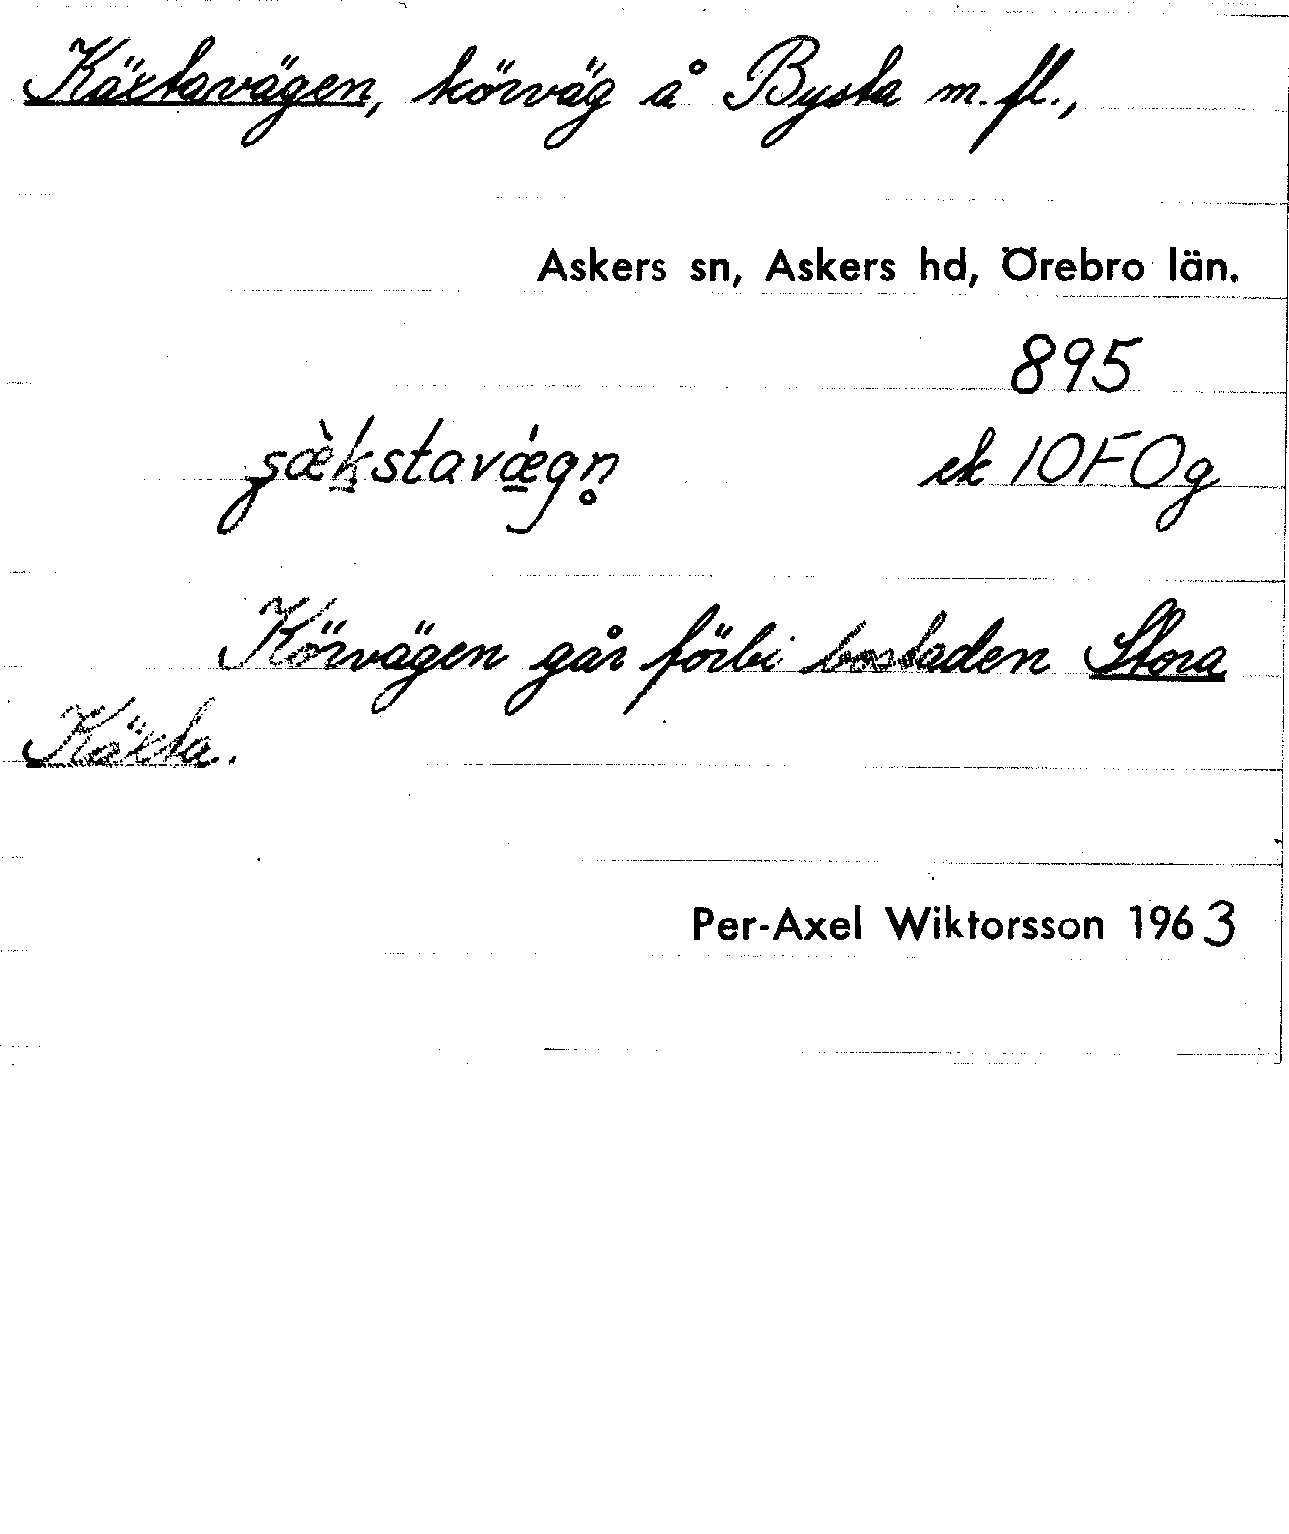 Käxtavägen, körväg å Bysta m.fl.,
Askers sn, Askers hd, Örebro län.
895
ek 10FOg
Körvägen går förbi bostaden Stora
Käxta.
Per-Axel Wiktorsson 1963